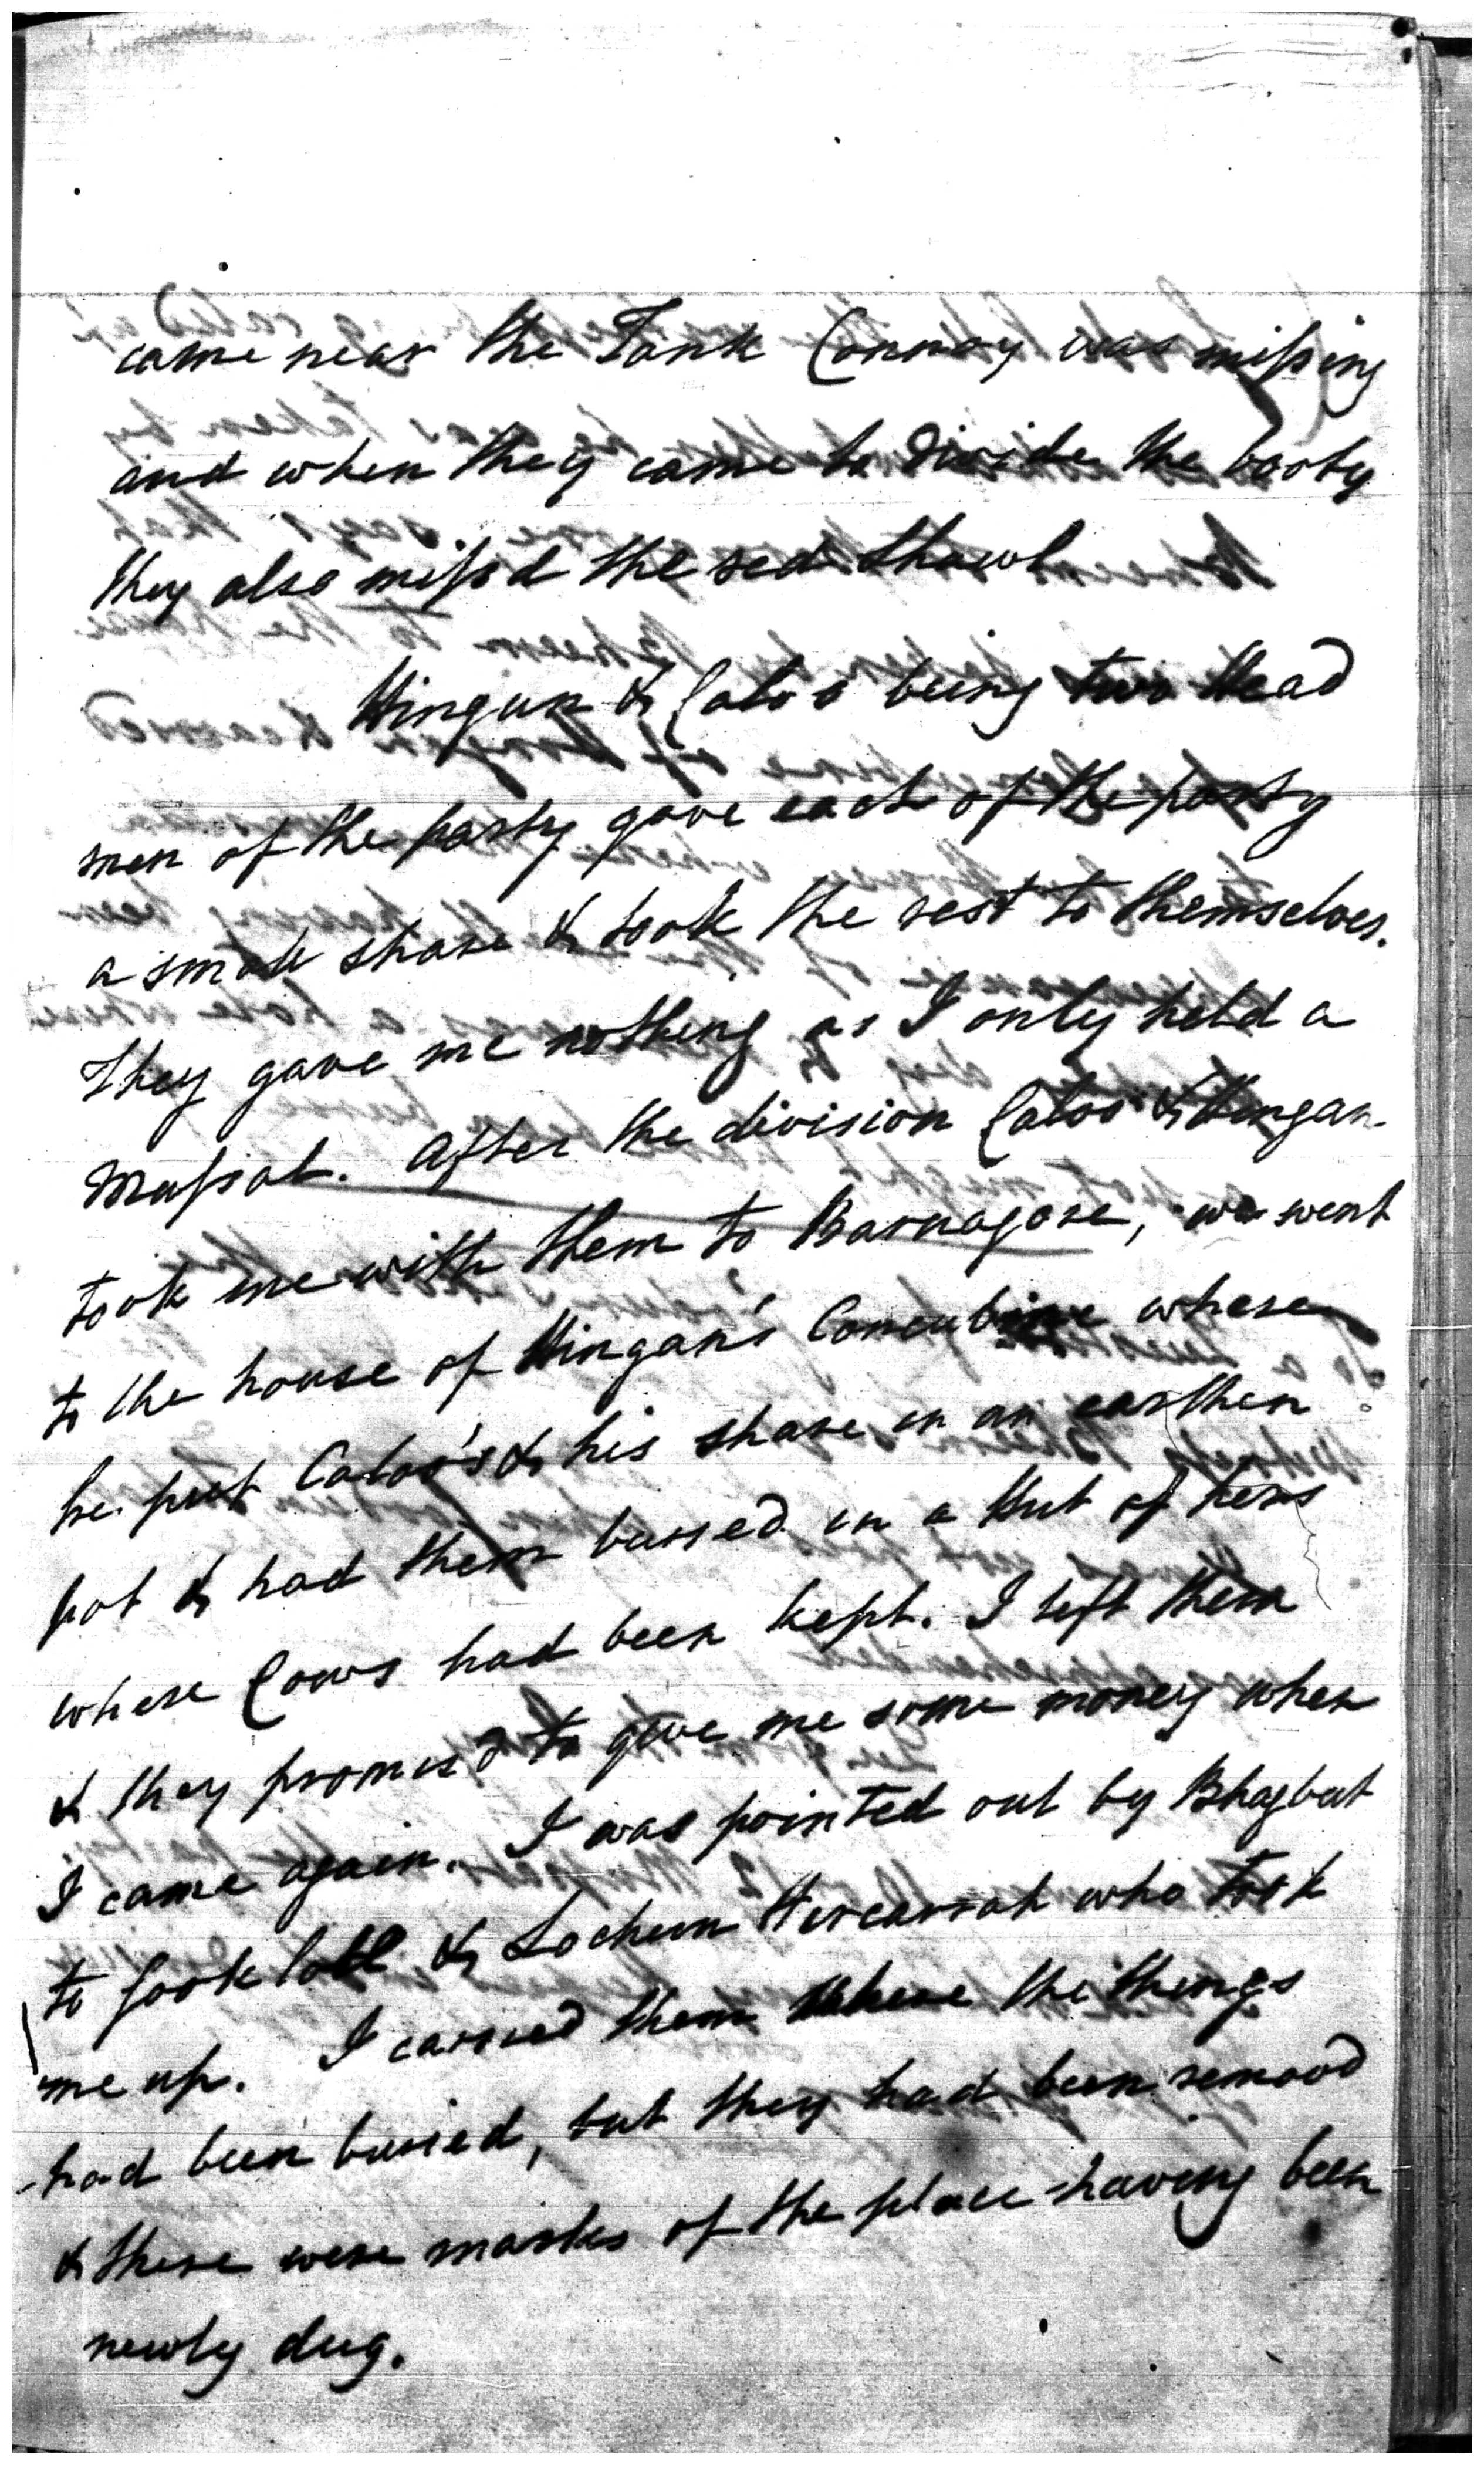 came near the Tank Connoy was missing
and when they came to divide the booty
they also miss'd the red Shawl
Hingun & Caloo being two Head
men of the party gave each of the party
a small share & took the rest to themselves.
They gave me nothing as I only held a
Mussal. After the division Caloo & Hingan
took me with them to Barnagore, we went
to the house of Hingan's Concubine where
he put Caloo's & his share in an earthen
pot & had them burred in a Hut of hers
where Cows had been kept. I left them
& they promis'd to give me some money when
I came again. I was pointed out by Bhagbut
to & Lochun Hircarrah who took
me up. I carried them where the things
had been buried, but they had been remood
& there were marks of the place having been
newly dug.